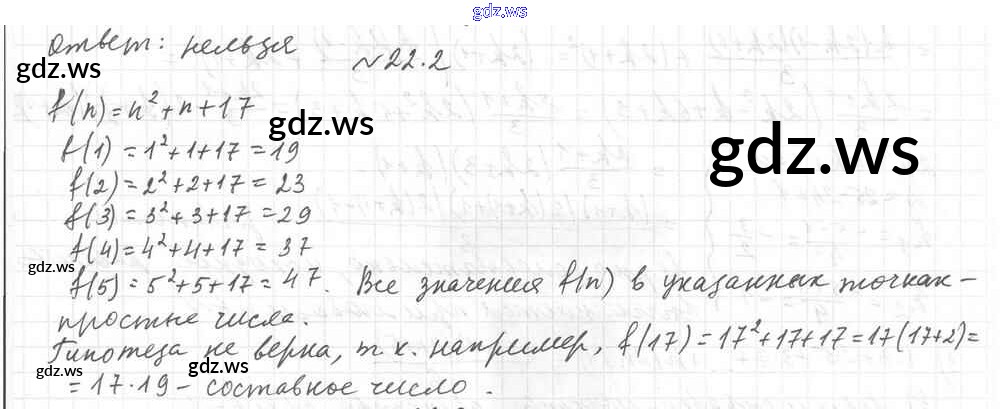 gdz.ws
Ответ: нельзя
№22.2
gdz.ws
f(n)=n²+n+17
gdz.ws
f(1)=1²+1+17=19
gdz.ws
f(2)=2²+2+17=23
f(3)=3²+3+17=29
f(4)=4²+4+17=37
gdz.ws
gdz.ws
f(5)=5²+5+17=47. Все значения f(n) в указанных точках-
простые числа.
gdz.ws
Гипотеза не верна, т.к. например, f(17)=17²+17+17=17(17+2)=
gdz.ws
gdz.ws
=17·19-составное число.